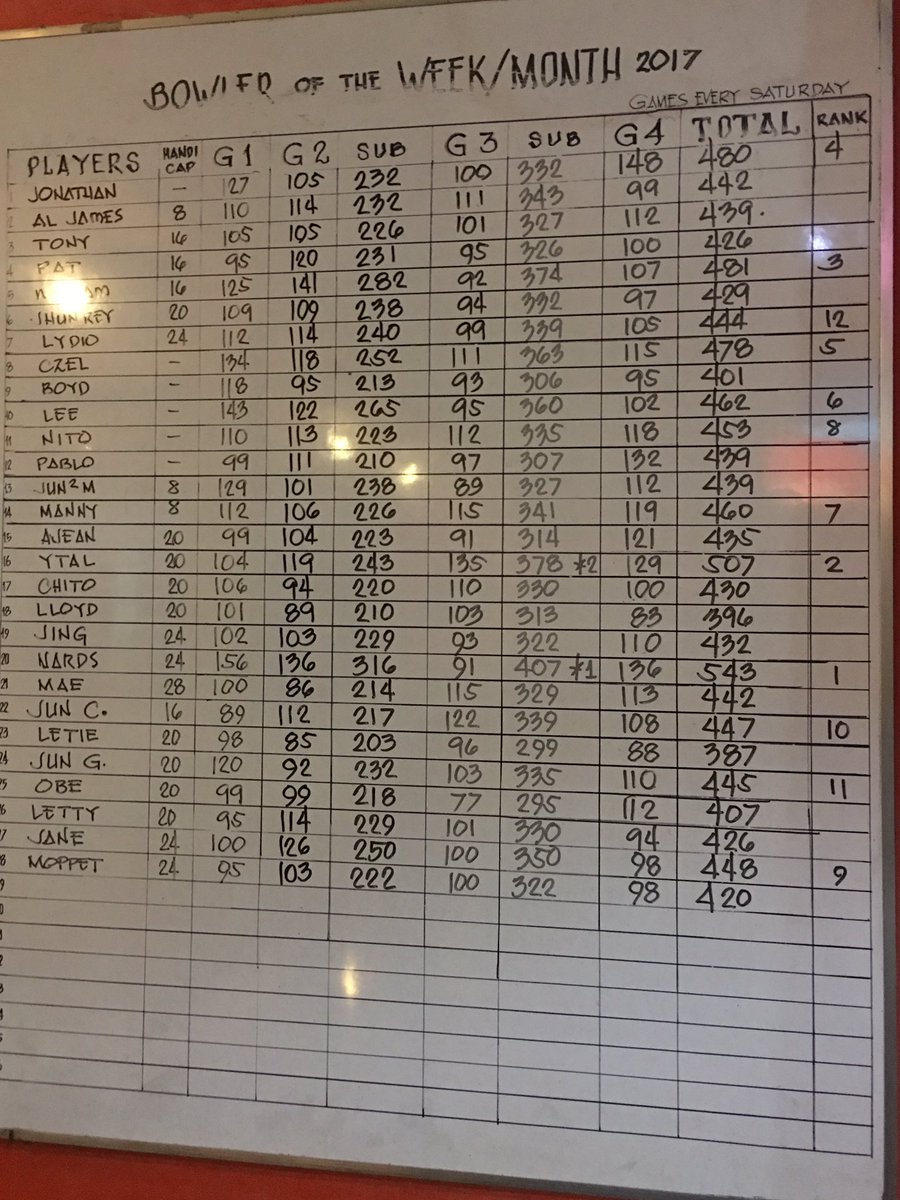 BOWLER OF THE WEEK/MONTH 2017
GAMES EVERY SATURDAY
PLAYERS HANDI CAP G1 G2 SUB G3 SUB G4 TOTAL RANK
1 JONATHAN - 127 105 232 100 332 148 480 4
2 AL JAMES 8 110 114 232 111 343 99 442
3 TONY 16 105 105 226 101 327 112 439.
4 PAT 16 95 120 231 95 326 100 426
5 16 125 141 282 92 374 107 481 3
6 JHUN REY 20 109 109 238 94 332 97 429
7 LYDIO 24 112 114 240 99 339 105 444 12
8 CZEL - 134 118 252 111 363 115 478 5
9 BOYD - 118 95 213 93 306 95 401
10 LEE - 143 122 265 95 360 102 462 6
11 NITO - 110 113 223 112 335 118 453 8
12 PABLO - 99 111 210 97 307 132 439
13 JUN²M 8 129 101 238 89 327 112 439
14 MANNY 8 112 106 226 115 341 119 460 7
15 AJEAN 20 99 104 223 91 314 121 435
16 YTAL 20 104 119 243 135 378 *2 129 507 2
17 CHITO 20 106 94 220 110 330 100 430
18 LLOYD 20 101 89 210 103 313 83 396
19 JING 24 102 103 229 93 322 110 432
20 NARDS 24 156 136 316 91 407 *1 136 543 1
21 MAE 28 100 86 214 115 329 113 442
22 JUN C. 16 89 112 217 122 339 108 447 10
23 LETIE 20 98 85 203 96 299 88 387
24 JUN G. 20 120 92 232 103 335 110 445 11
25 OBE 20 99 99 218 77 295 112 407
6 LETTY 20 95 114 229 101 330 94 426
7 JANE 24 100 126 250 100 350 98 448 9
8 MOPPET 24 95 103 222 100 322 98 420
9
0
1
2
3
4
5